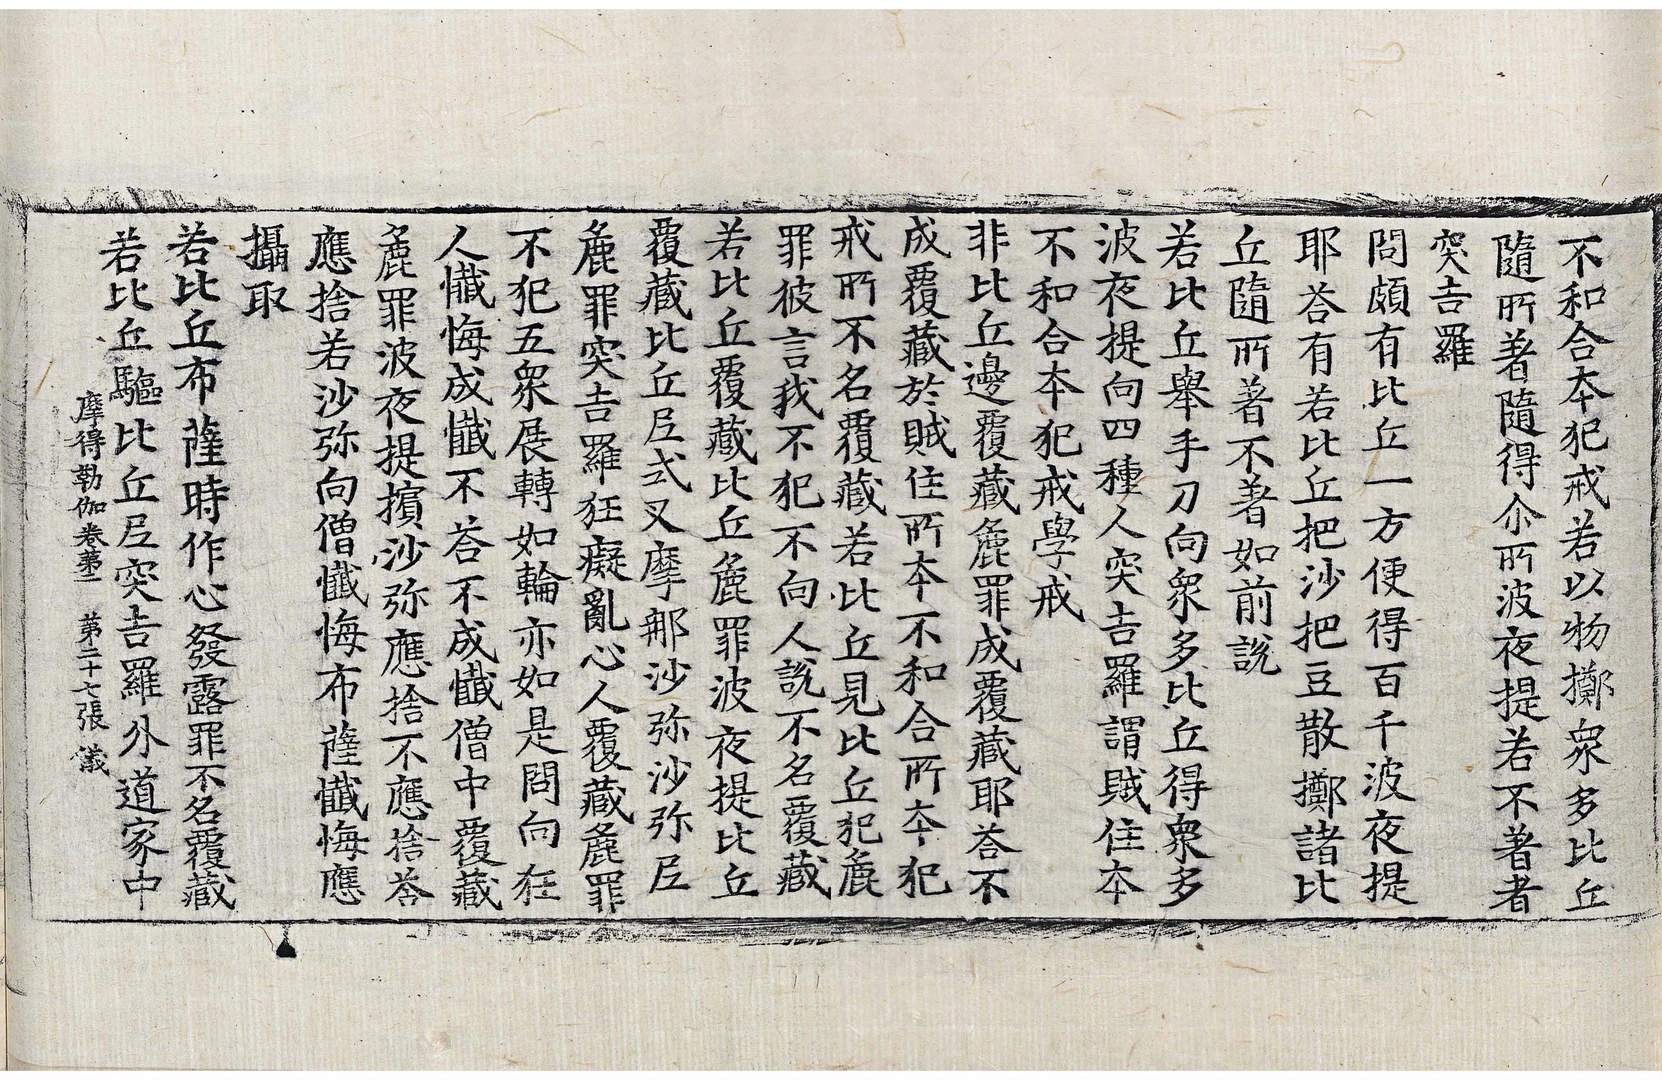 不和合本犯戒若以物擲衆多比丘
隨所著隨得尒所波夜提若不著者
突吉羅
問頗有比丘一方便得百千波夜提
耶荅有若比丘把沙把豆散擲諸比
丘隨所著不著如前說
若比丘舉手刀向衆多比丘得衆多
波夜提向四種人突吉羅謂賊住本
不和合本犯戒學戒
非比丘邊覆藏麁罪成覆藏耶荅不
成覆藏於賊住所本不和合所本犯
戒所不名覆藏若比丘見比丘犯麁
罪彼言我不犯不向人說不名覆藏
若比丘覆藏比丘麁罪波夜提比丘
覆藏比丘尼式叉摩那沙弥沙弥尼
麁罪突吉羅狂癡亂心人覆藏麁罪
不犯五衆展轉如輪亦如是問向狂
人懺悔成懺不荅不成懺僧中覆藏
麁罪波夜提擯沙弥應捨不應捨荅
應捨若沙弥向僧懺悔布薩懺悔應
攝取
若比丘布薩時作心發露罪不名覆藏
若比丘驅比丘尼突吉羅外道家中
摩得勒伽卷第二　第二十七張　儀